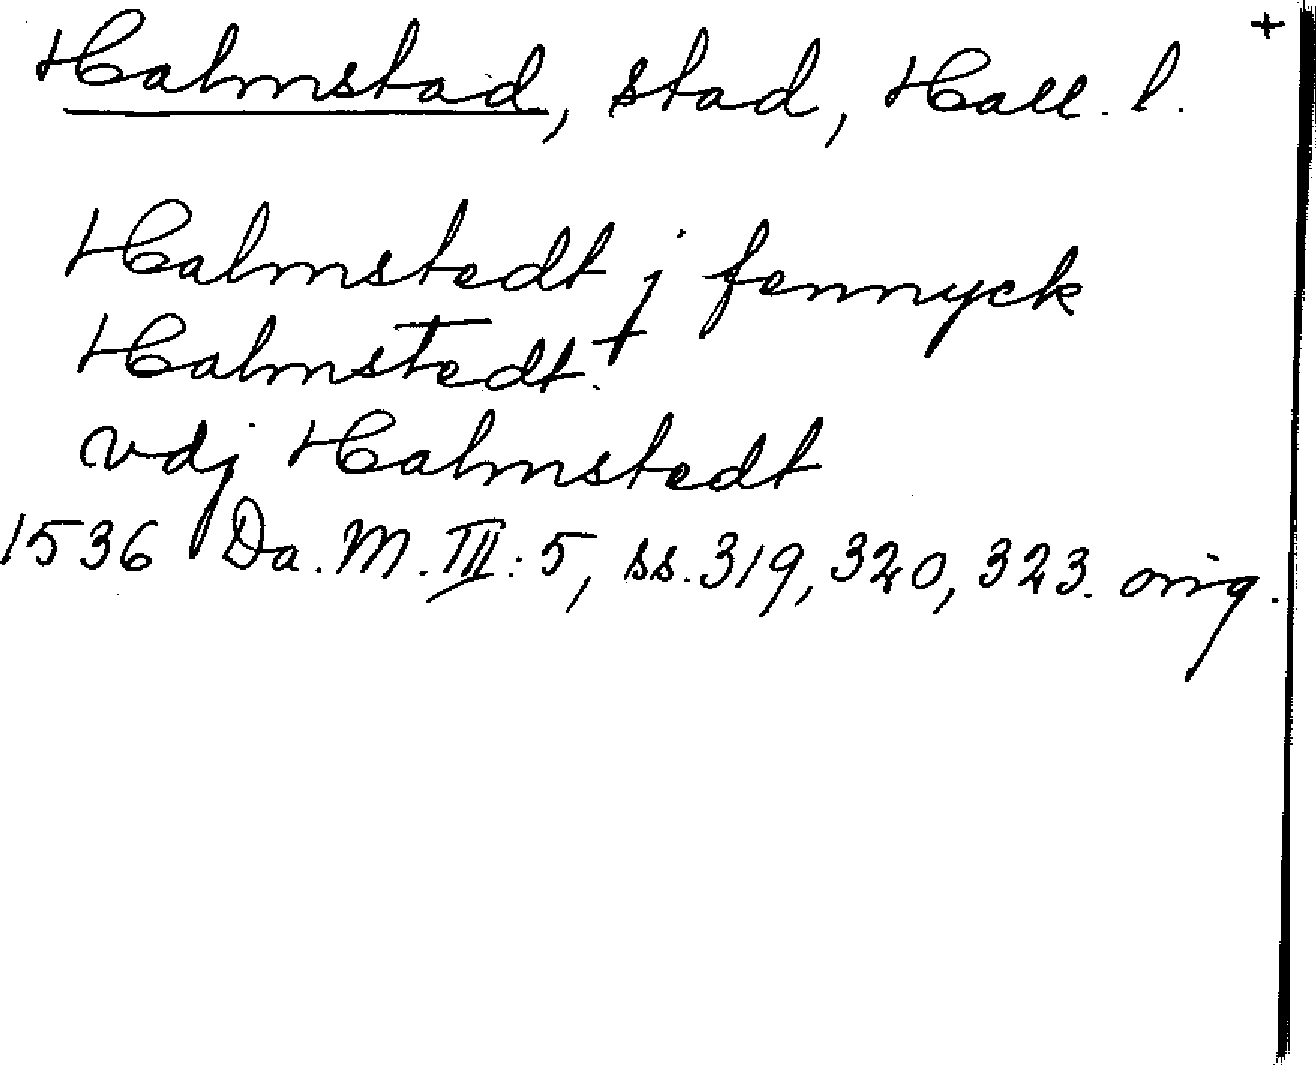 +
Halmstad, stad, Hall. l.
Halmstedt j fennyck
Halmstedt.
vdj Halmstedt
1536 Da. M. III: 5, ss. 319, 320, 323. orig.